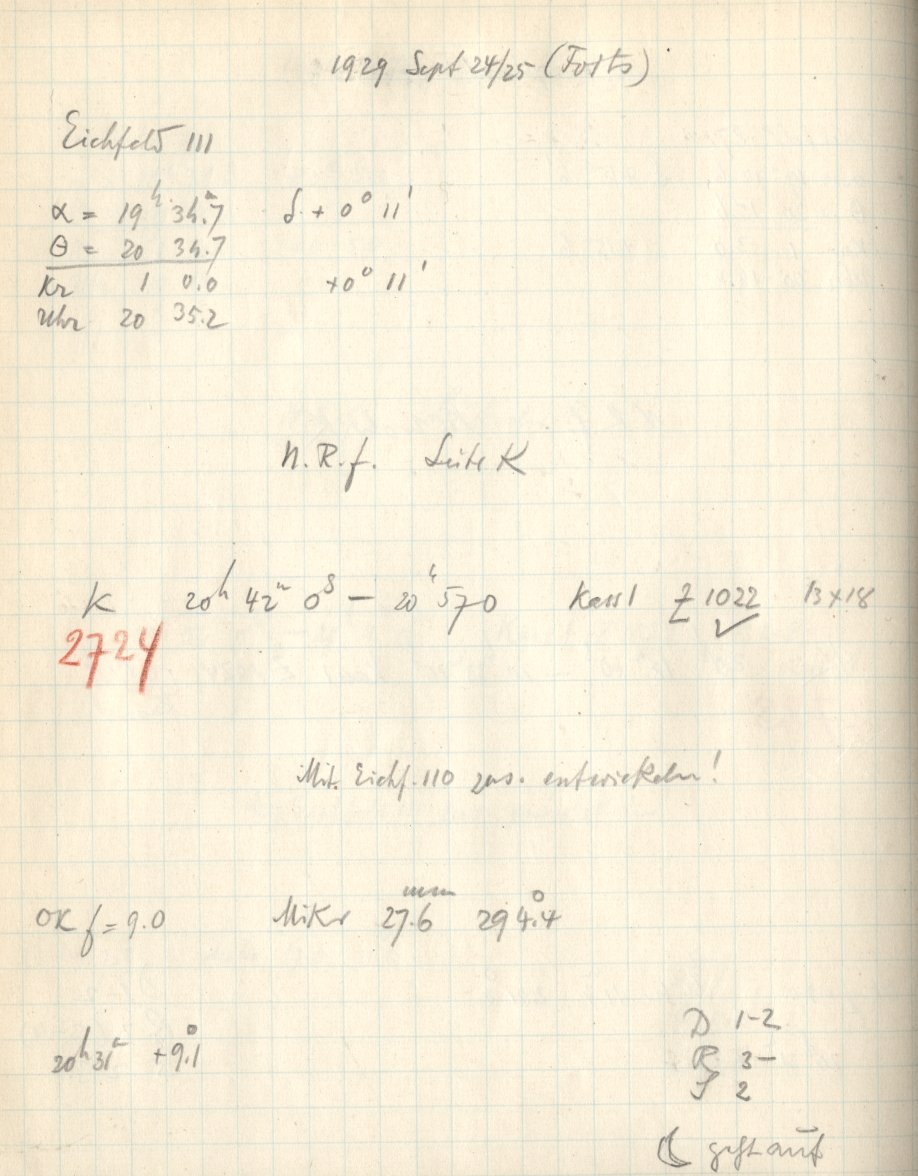 1929 Sept 24/25 (Forts)
Eichfeld 111
α = 19ʰ 34.ᵐ7 δ + 0° 11'
θ = 20 34.7
Kr 1 0.0 +0° 11'
Uhr 20 35.2
N.R.f. Seite K
K 20ʰ 42ᵐ 0ˢ — 20ʰ 57 0 Kass 1 Z 1022 13×18
2724 ✓
Mit. Eichf. 110 zus. entwickeln!
OK f = 9.0 Mikr 27.6ᵐᵐ 294.°4
20ʰ 31ᵐ +9.°1
D 1-2
R 3-
S 2
☾ geht auf